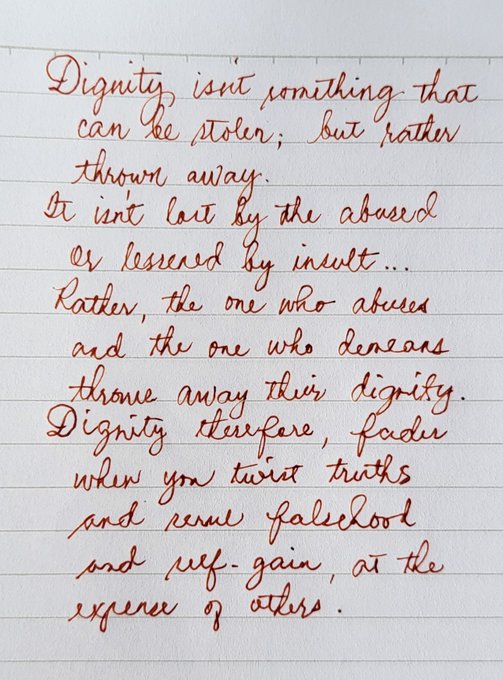 Dignity isn't something that
can be stolen; but rather
thrown away.
It isn't lost by the abused
or lessened by insult...
Rather, the one who abuses
and the one who demeans
throws away their dignity.
Dignity therefore, fades
when you twist truths
and serve falsehood
and self-gain, at the
expense of others.